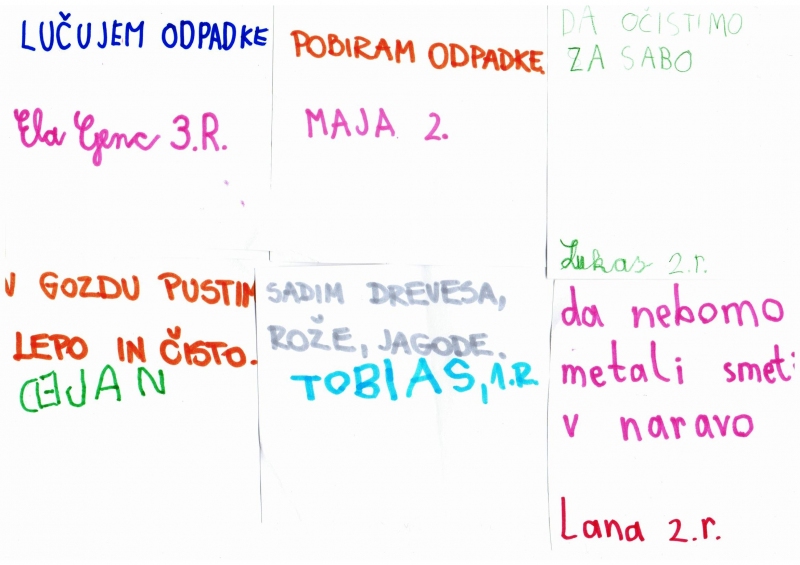 LUČUJEM ODPADKE
Ela Genc 3.R.
POBIRAM ODPADKE
MAJA 2.
DA OČISTIMO
ZA SABO
Lukas 2.r.
V GOZDU PUSTIM
LEPO IN ČISTO.
DEJAN
SADIM DREVESA,
ROŽE, JAGODE.
TOBIAS, 1.R
da nebomo
metali smeti
v naravo
Lana 2.r.